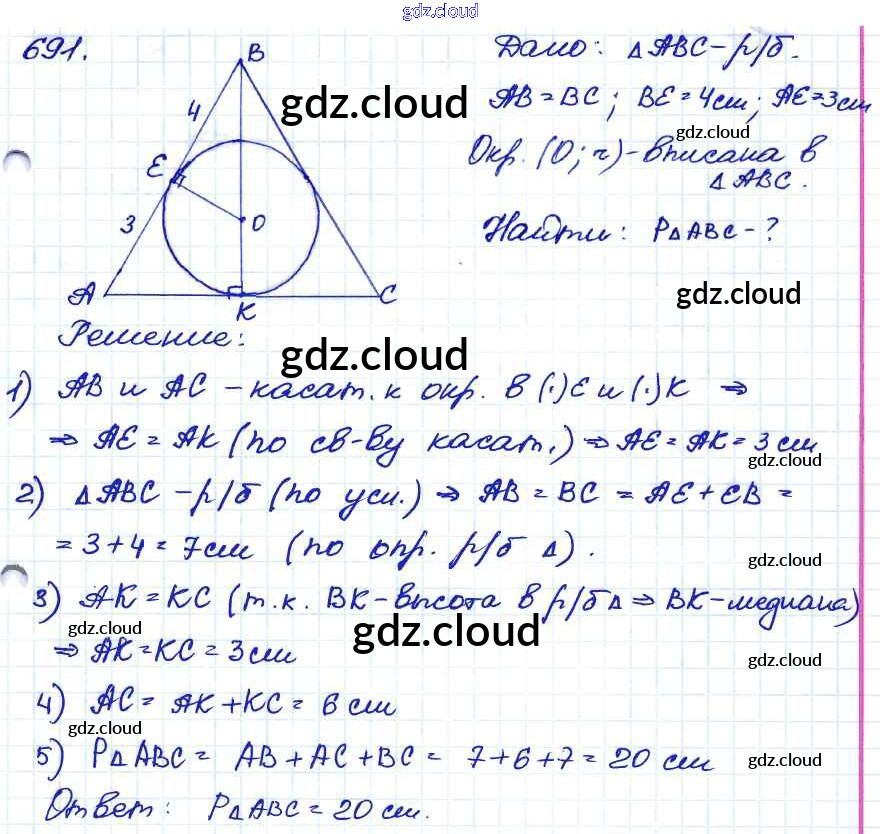 gdz.cloud
691.
Дано: △ABC – р/б.
AB = BC; BE = 4см; AE = 3см
gdz.cloud
gdz.cloud
Окр. (O; r) – вписана в
△ABC.
Найти: P△ABC – ?
gdz.cloud
B
4
E
3
O
A
K
C
Решение:
gdz.cloud
1) AB и AC – касат. к окр. в (·)E и (·)K ⇒
⇒ AE = AK (по св-ву касат.) ⇒ AE = AK = 3 см
gdz.cloud
2) △ABC – р/б (по усл.) ⇒ AB = BC = AE + EB =
= 3 + 4 = 7см (по опр. р/б △).
gdz.cloud
3) AK = KC (т.к. BK – высота в р/б △ ⇒ BK – медиана)
gdz.cloud
gdz.cloud
⇒ AK = KC = 3 см
gdz.cloud
4) AC = AK + KC = 6 см
gdz.cloud
5) P△ABC = AB + AC + BC = 7 + 6 + 7 = 20 см
gdz.cloud
Ответ: P△ABC = 20 см.